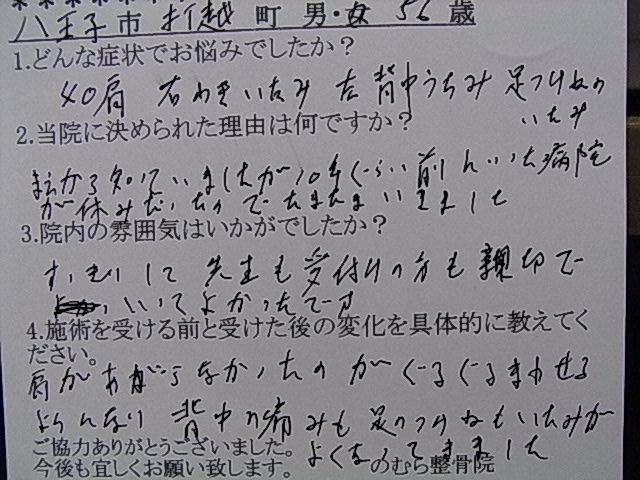 八王子市 打越 町 男・女 56 歳
1.どんな症状でお悩みでしたか？
40肩 右わきいたみ 左背中うちみ 足つけねの
いたみ
2.当院に決められた理由は何ですか？
まえから知っていましたが10年くらい前にいった病院
が休みだったのでたまたまいきました
3.院内の雰囲気はいかがでしたか？
すっきりして先生も受付けの方も親切で
いってよかったです
4.施術を受ける前と受けた後の変化を具体的に教えてく
ださい。
肩があがらなかったのがぐるぐるまわせる
ようになり背中の痛みも足のつけねもいたみが
ご協力ありがとうございました。 よくなってきました
今後も宜しくお願い致します。 のむら整骨院